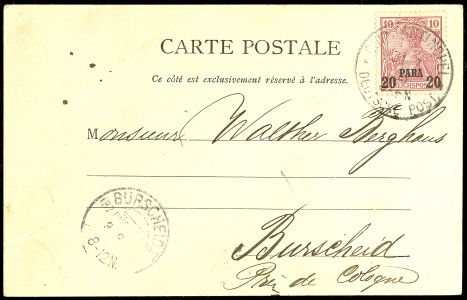 10 10
PARA
20 20
REICHSPOST
DEUTSCHE POST
CARTE POSTALE
Ce côté est exclusivement réservé à l'adresse.
Monsieur Walther Berghaus
BURSCHEID
8-12N.
Burscheid
Près de Cologne